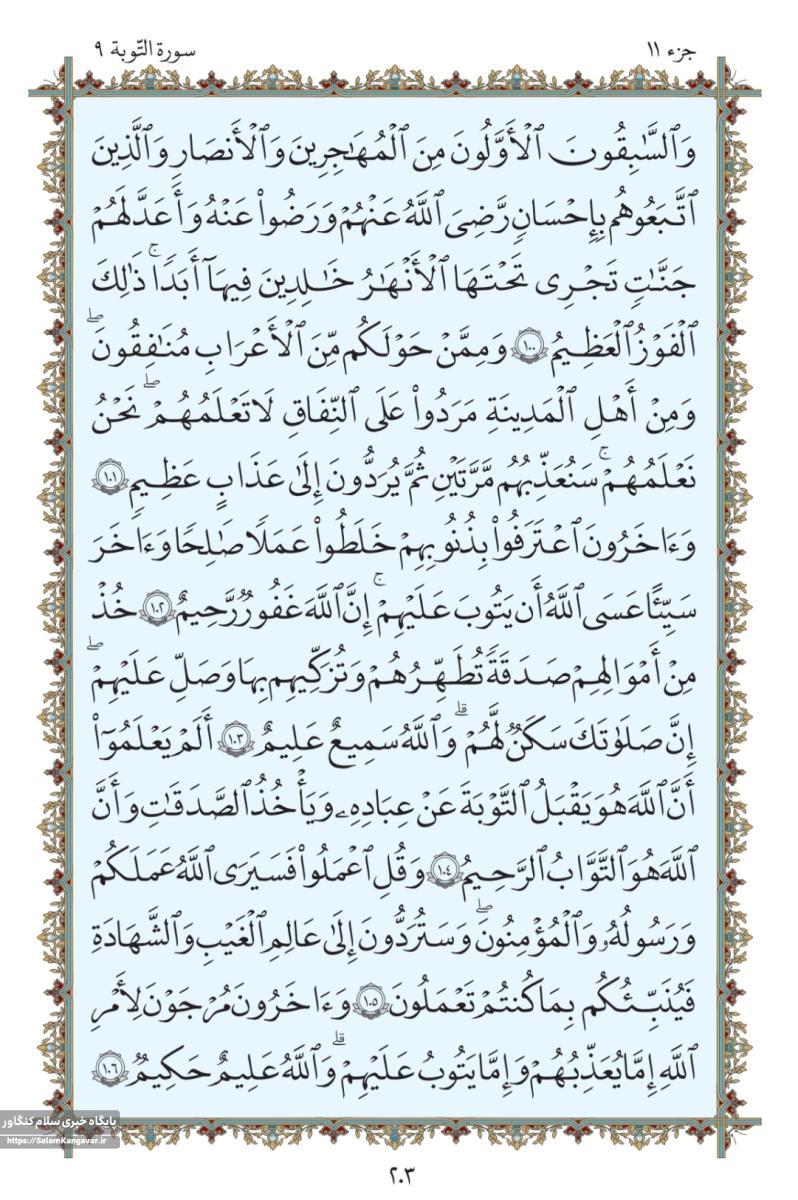 جزء ۱۱
سورة التّوبة ۹
وَٱلسَّٰبِقُونَ ٱلۡأَوَّلُونَ مِنَ ٱلۡمُهَٰجِرِينَ وَٱلۡأَنصَارِ وَٱلَّذِينَ
ٱتَّبَعُوهُم بِإِحۡسَٰنٖ رَّضِيَ ٱللَّهُ عَنۡهُمۡ وَرَضُواْ عَنۡهُ وَأَعَدَّ لَهُمۡ
جَنَّٰتٖ تَجۡرِي تَحۡتَهَا ٱلۡأَنۡهَٰرُ خَٰلِدِينَ فِيهَآ أَبَدٗاۚ ذَٰلِكَ
ٱلۡفَوۡزُ ٱلۡعَظِيمُ ١٠٠ وَمِمَّنۡ حَوۡلَكُم مِّنَ ٱلۡأَعۡرَابِ مُنَٰفِقُونَۖ
وَمِنۡ أَهۡلِ ٱلۡمَدِينَةِ مَرَدُواْ عَلَى ٱلنِّفَاقِ لَا تَعۡلَمُهُمۡۖ نَحۡنُ
نَعۡلَمُهُمۡۚ سَنُعَذِّبُهُم مَّرَّتَيۡنِ ثُمَّ يُرَدُّونَ إِلَىٰ عَذَابٍ عَظِيمٖ ١٠١
وَءَاخَرُونَ ٱعۡتَرَفُواْ بِذُنُوبِهِمۡ خَلَطُواْ عَمَلٗا صَٰلِحٗا وَءَاخَرَ
سَيِّئًا عَسَى ٱللَّهُ أَن يَتُوبَ عَلَيۡهِمۡۚ إِنَّ ٱللَّهَ غَفُورٞ رَّحِيمٌ ١٠٢ خُذۡ
مِنۡ أَمۡوَٰلِهِمۡ صَدَقَةٗ تُطَهِّرُهُمۡ وَتُزَكِّيهِم بِهَا وَصَلِّ عَلَيۡهِمۡۖ
إِنَّ صَلَوٰتَكَ سَكَنٞ لَّهُمۡۗ وَٱللَّهُ سَمِيعٌ عَلِيمٌ ١٠٣ أَلَمۡ يَعۡلَمُوٓاْ
أَنَّ ٱللَّهَ هُوَ يَقۡبَلُ ٱلتَّوۡبَةَ عَنۡ عِبَادِهِۦ وَيَأۡخُذُ ٱلصَّدَقَٰتِ وَأَنَّ
ٱللَّهَ هُوَ ٱلتَّوَّابُ ٱلرَّحِيمُ ١٠٤ وَقُلِ ٱعۡمَلُواْ فَسَيَرَى ٱللَّهُ عَمَلَكُمۡ
وَرَسُولُهُۥ وَٱلۡمُؤۡمِنُونَۖ وَسَتُرَدُّونَ إِلَىٰ عَٰلِمِ ٱلۡغَيۡبِ وَٱلشَّهَٰدَةِ
فَيُنَبِّئُكُم بِمَا كُنتُمۡ تَعۡمَلُونَ ١٠٥ وَءَاخَرُونَ مُرۡجَوۡنَ لِأَمۡرِ
ٱللَّهِ إِمَّا يُعَذِّبُهُمۡ وَإِمَّا يَتُوبُ عَلَيۡهِمۡۗ وَٱللَّهُ عَلِيمٌ حَكِيمٞ ١٠٦
پایگاه خبری سلام کنگاور
https://SalamKangavar.ir
۲۰۳